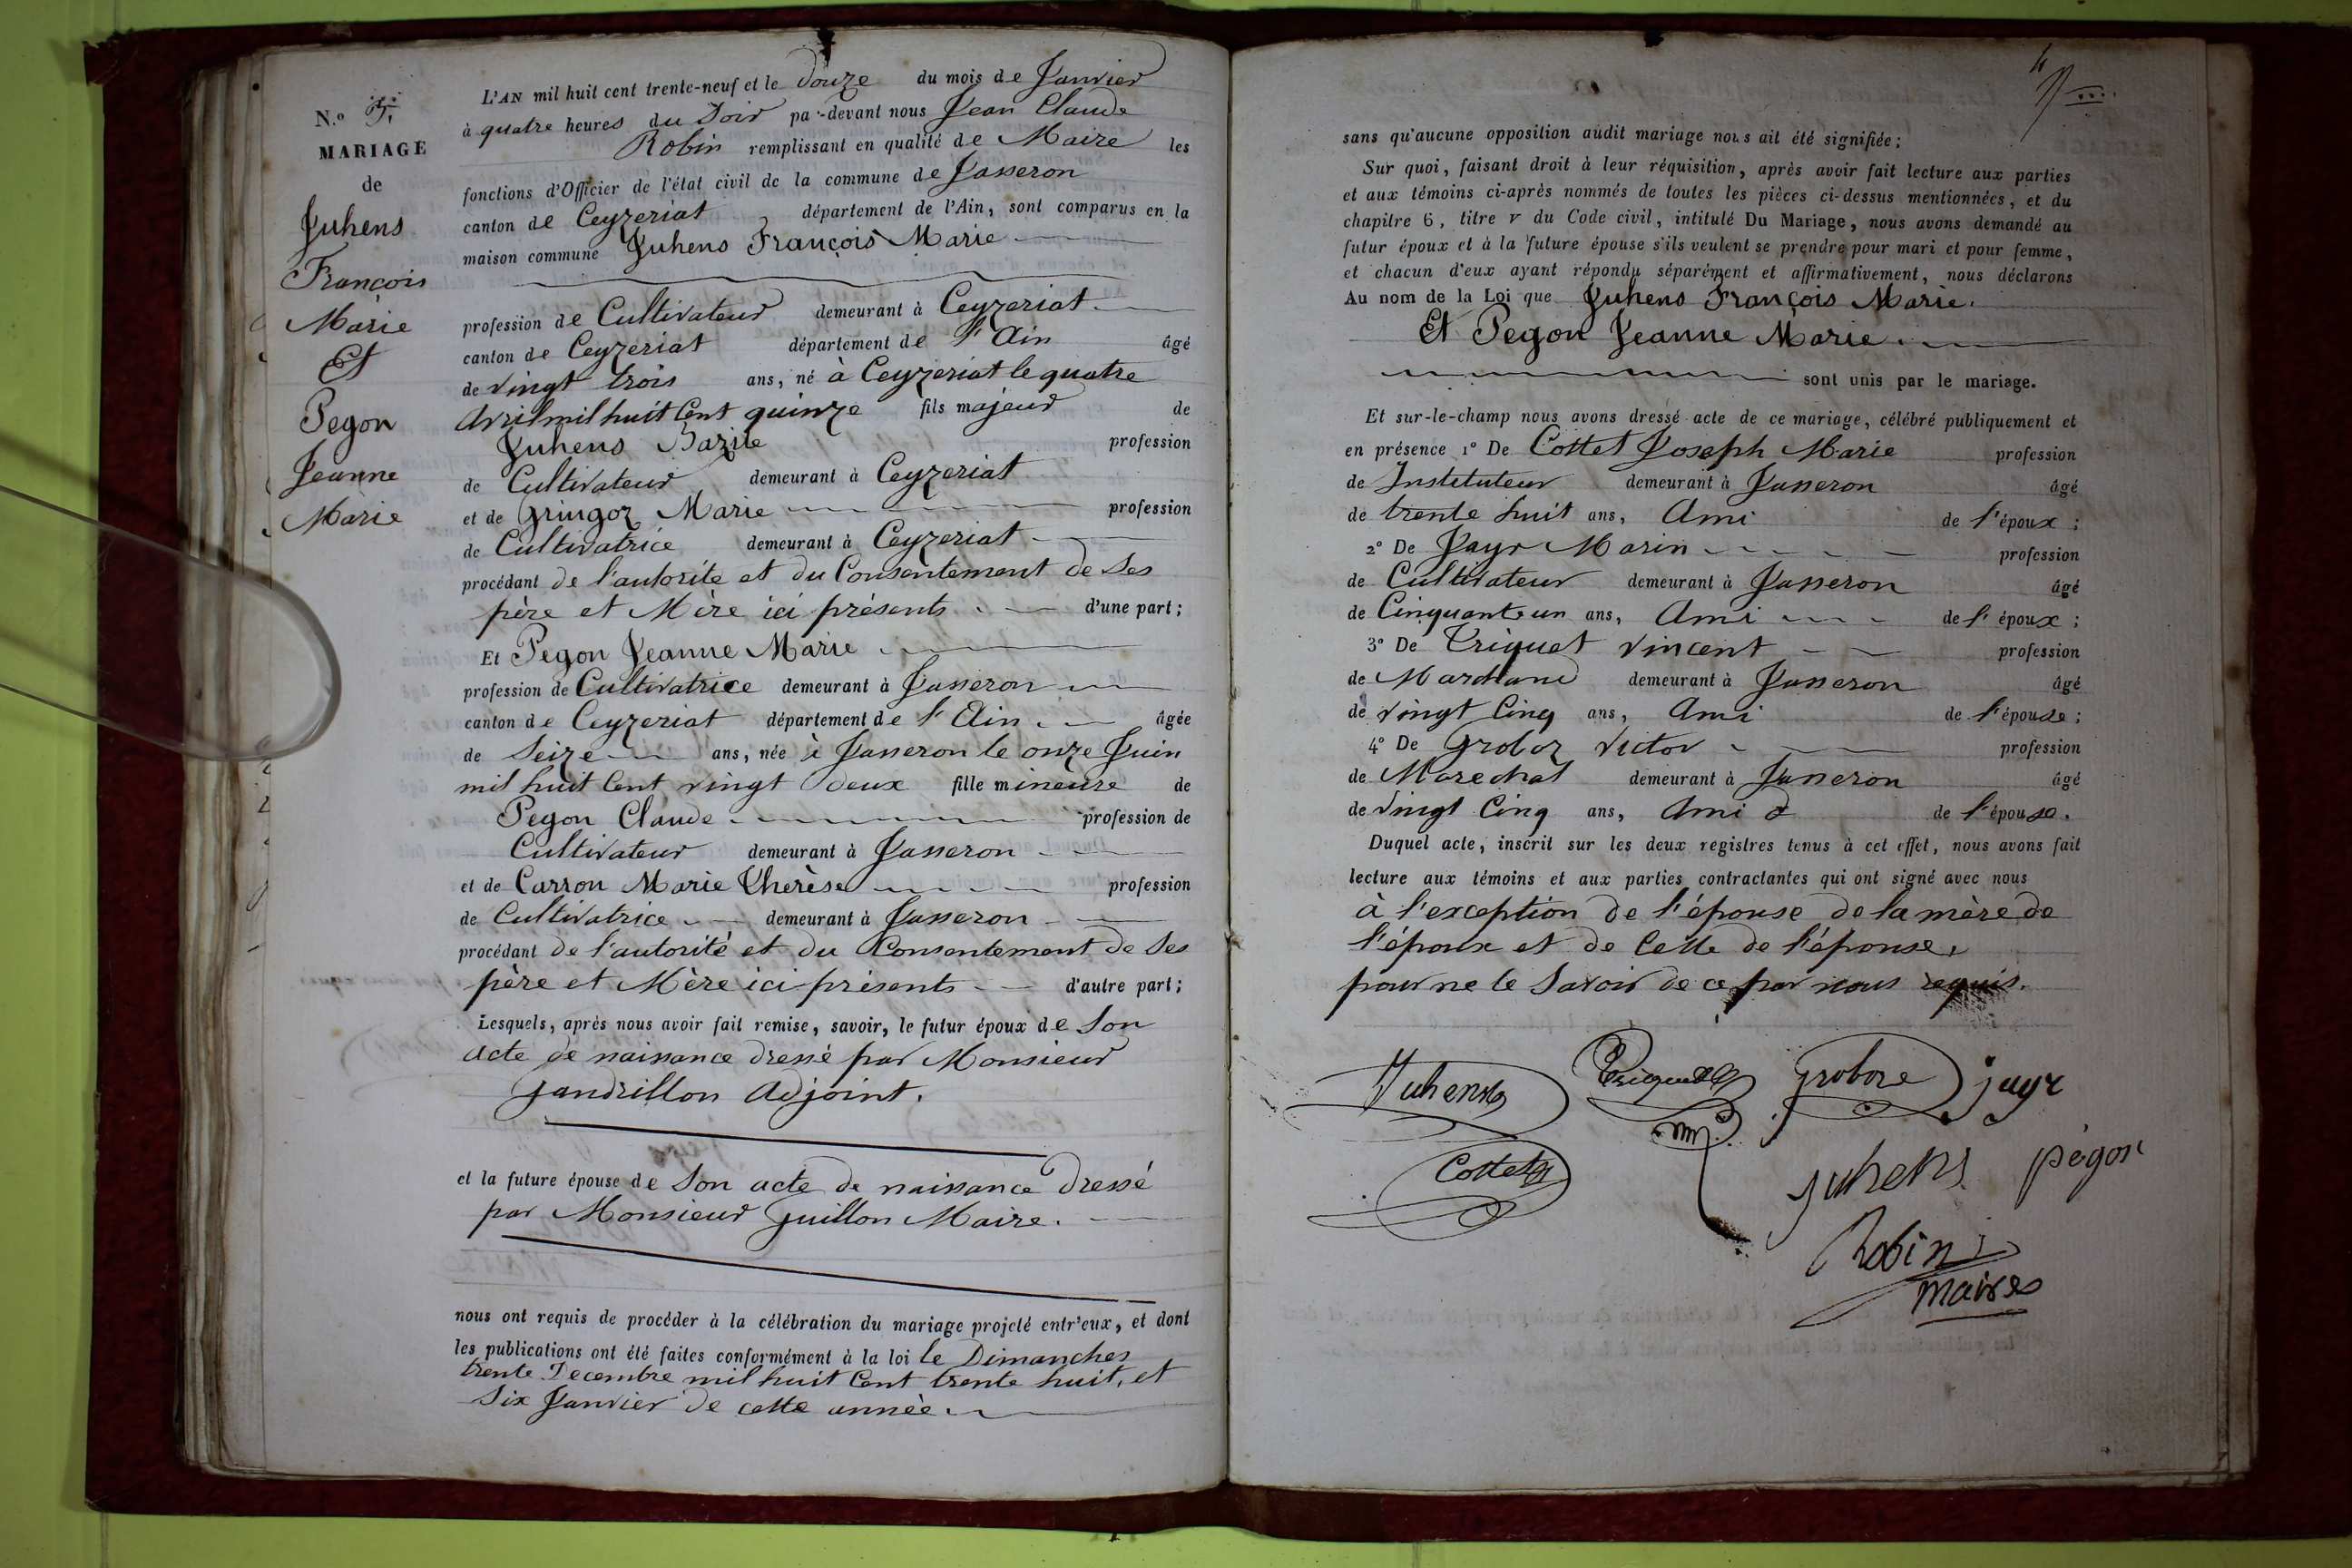 N.o 5.
MARIAGE
de
Juhens
François
Marie
Et
Pegon
Jeanne
Marie
L'AN mil huit cent trente-neuf et le douze du mois de Janvier
à quatre heures du Soir pa-devant nous Jean Claude
Robin remplissant en qualité de Maire les
fonctions d'Officier de l'état civil de la commune de Jasseron
canton de Ceyzeriat département de l'Ain, sont comparus en la
maison commune Juhens François Marie
profession de Cultivateur demeurant à Ceyzeriat
canton de Ceyzeriat département de l'Ain âgé
de vingt trois ans, né à Ceyzeriat le quatre
avril mil huit Cent quinze fils majeur de
Juhens Bazile profession
de Cultivateur demeurant à Ceyzeriat
et de Gringoz Marie profession
de Cultivatrice demeurant à Ceyzeriat
procédant de l'autorite et du Consentement de Ses
père et Mère ici présents d'une part;
Et Pegon Jeanne Marie
profession de Cultivatrice demeurant à Jasseron
canton de Ceyzeriat département de l'Ain âgée
de Seize ans, née à Jasseron le onze Juin
mil huit Cent vingt deux fille mineure de
Pegon Claude profession de
Cultivateur demeurant à Jasseron
et de Carron Marie Thérèse profession
de Cultivatrice demeurant à Jasseron
procédant de l'autorité et du Consentement de Ses
père et Mère ici présents d'autre part;
Lesquels, après nous avoir fait remise, savoir, le futur époux de Son
acte de naissance dressé par Monsieur
Gandrillon Adjoint.
et la future épouse de Son acte de naissance dressé
par Monsieur Guillon Maire.
nous ont requis de procéder à la célébration du mariage projeté entr'eux, et dont
les publications ont été faites conformément à la loi le Dimanches
trente Decembre mil huit Cent trente huit, et
Six Janvier de cette année.
sans qu'aucune opposition audit mariage nous ait été signifiée;
Sur quoi, faisant droit à leur réquisition, après avoir fait lecture aux parties
et aux témoins ci-après nommés de toutes les pièces ci-dessus mentionnées, et du
chapitre 6, titre v du Code civil, intitulé Du Mariage, nous avons demandé au
futur époux et à la future épouse s'ils veulent se prendre pour mari et pour femme,
et chacun d'eux ayant répondu séparément et affirmativement, nous déclarons
Au nom de la Loi que Juhens François Marie.
Et Pegon Jeanne Marie.
sont unis par le mariage.
Et sur-le-champ nous avons dressé acte de ce mariage, célébré publiquement et
en présence 1° De Cottet Joseph Marie profession
de Instituteur demeurant à Jasseron âgé
de trente huit ans, Ami de l'époux;
2° De Jayr Marin profession
de Cultivateur demeurant à Jasseron âgé
de Cinquante un ans, Ami de l'époux;
3° De Triquet Vincent profession
de Marchand demeurant à Jasseron âgé
de vingt Cinq ans, Ami de l'épouse;
4° De Groboz Victor profession
de Marechal demeurant à Jasseron âgé
de vingt Cinq ans, Ami de l'épouse.
Duquel acte, inscrit sur les deux registres tenus à cet effet, nous avons fait
lecture aux témoins et aux parties contractantes qui ont signé avec nous
à l'exception de l'épouse de la mère de
l'époux et de Celle de l'épouse,
pour ne le Savoir de ce par nous requis.
Juhens Triquet Groboze jayr
Cottet
juhens pégon
Robin
maires